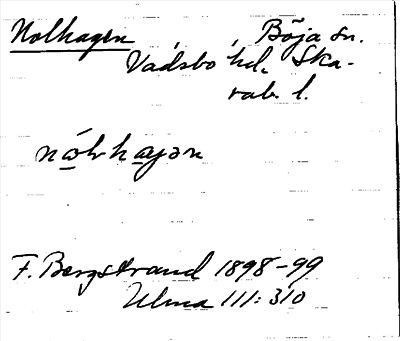 Nolhagen, Böja sn.
Vadsbo hd. Ska-
rab. l.
F. Bergstrand 1898-99
Ulma 111:310